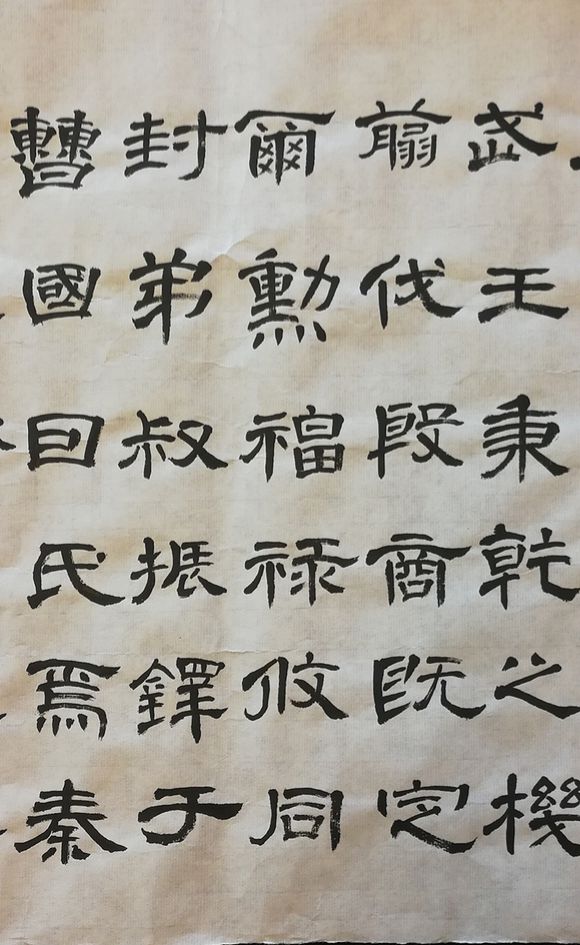 武王秉乾之機
翦伐殷商既定
爾勳福禄攸同
封弟叔振鐸于
曹國因氏焉秦